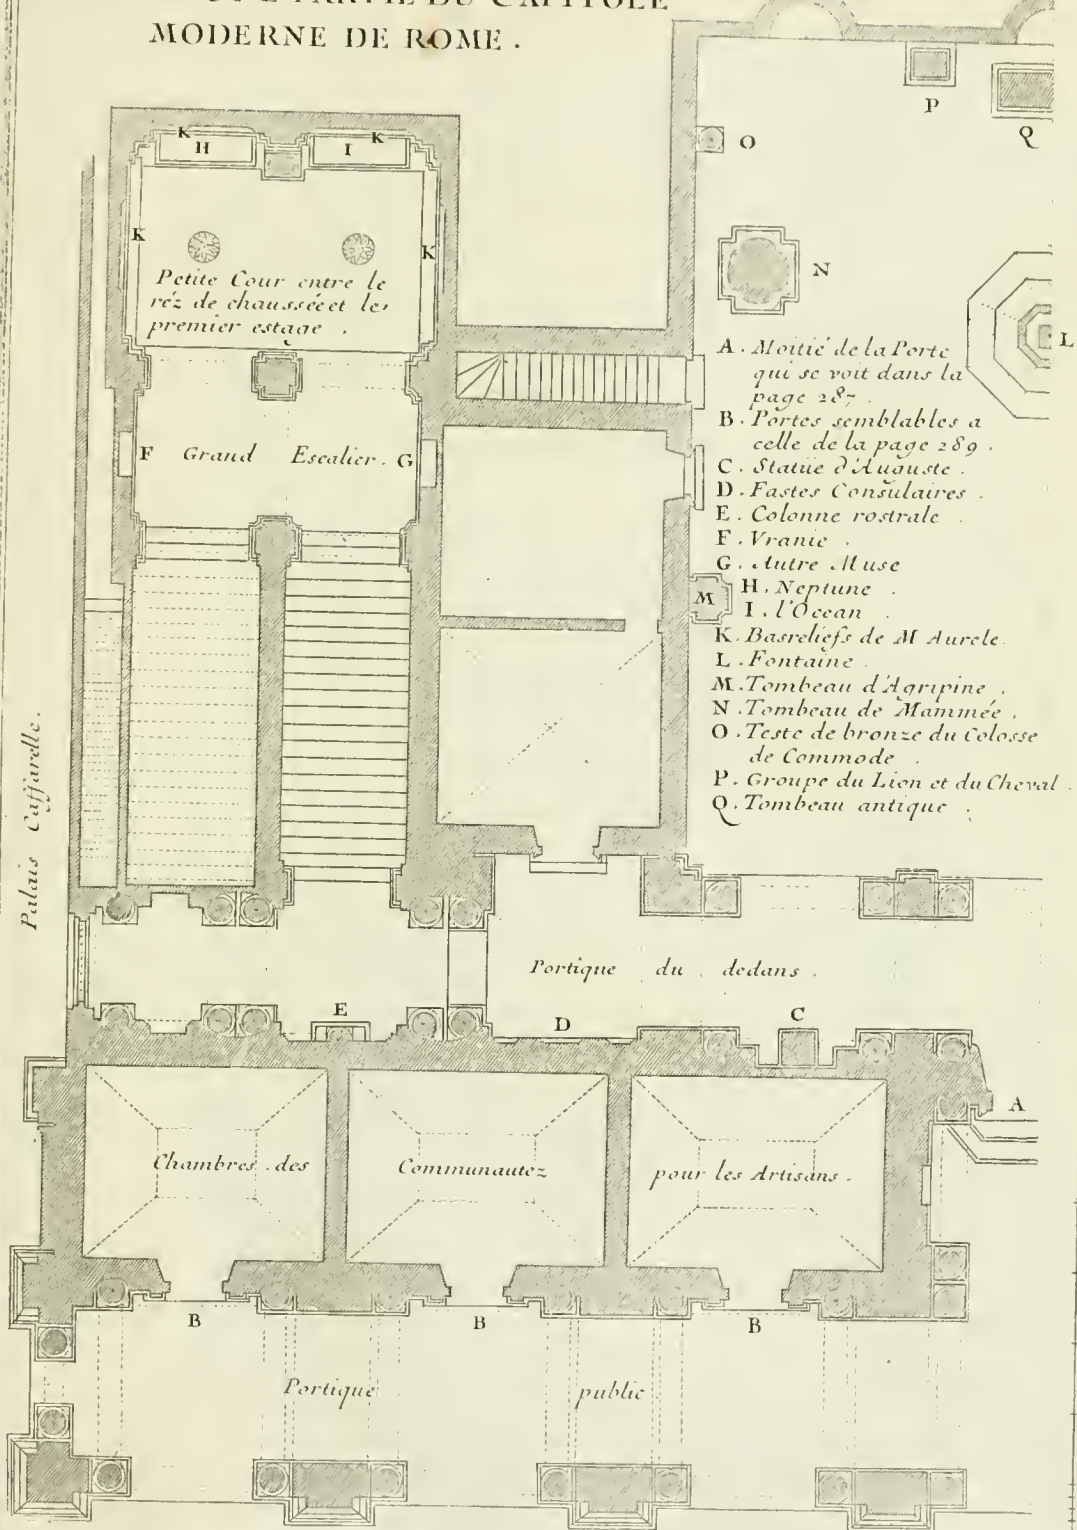 PARTIE DU CAPITOLE
MODERNE DE ROME .
P
Q
O
K
K
H
I
N
K
K
Petite Cour entre le
réz de chaussée et le
premier estage .
L
A . Moitié de la Porte
qui se voit dans la
page 287 .
B . Portes semblables a
celle de la page 289 .
C . Statüe d'Auguste .
D . Fastes Consulaires .
E . Colonne rostrale .
F . Vranie .
G . Autre Muse
H . Neptune .
I . l'Ocean .
K . Basreliefs de M Aurele .
L . Fontaine .
M . Tombeau d'Agripine .
N . Tombeau de Mammée .
O . Teste de bronze du Colosse
de Commode .
P . Groupe du Lion et du Cheval .
Q . Tombeau antique .
F Grand Escalier . G
M
Palais Caffarelle .
Portique du dedans .
E
D
C
A
Chambres des Communautez pour les Artisans .
B
B
B
Portique public